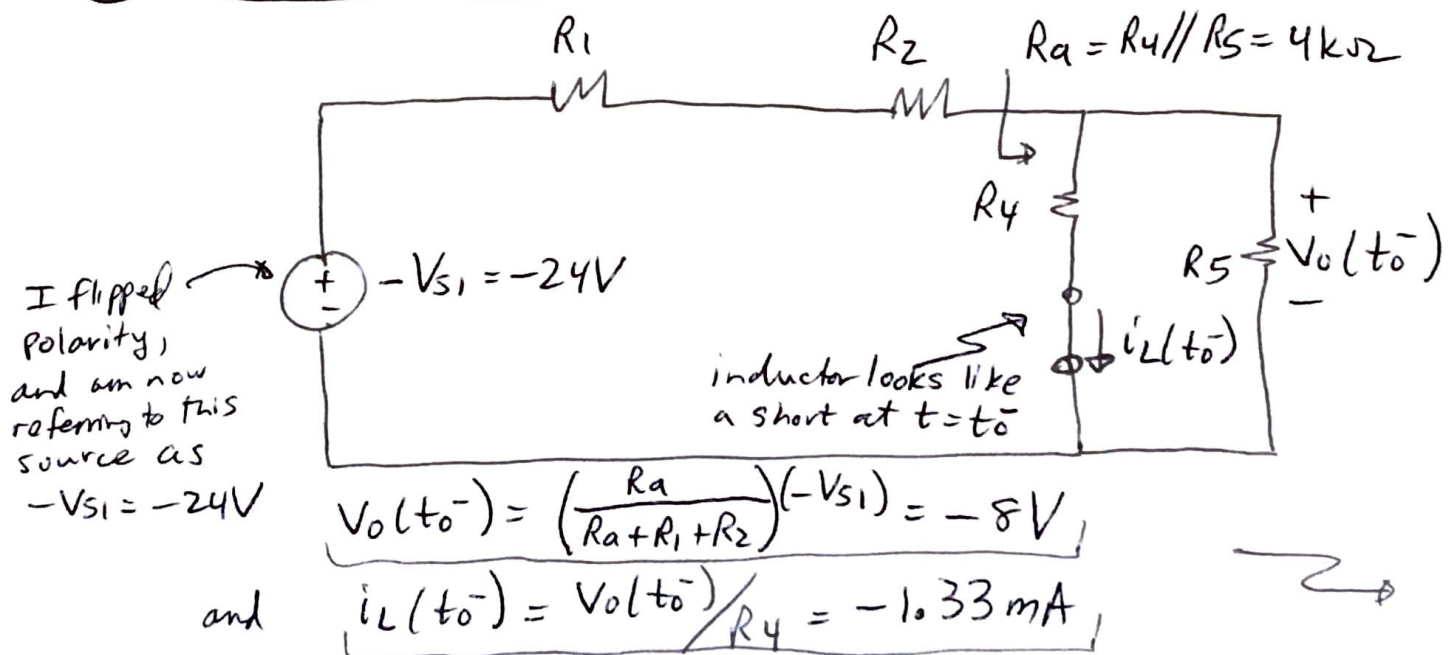 R1
R2
Ra = R4 // R5 = 4kΩ
R4
R5
+
Vo(to⁻)
−
+
-
- Vs1 = -24V
I flipped
polarity,
and am now
referring to this
source as
- Vs1 = -24V
inductor looks like
a short at t = to⁻
iL(to⁻)
Vo(to⁻) = (Ra / (Ra + R1 + R2)) (-Vs1) = -8V
and iL(to⁻) = Vo(to⁻) / R4 = -1.33 mA